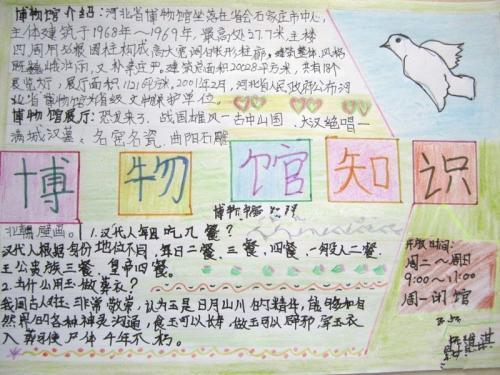 博物馆介绍:河北省博物馆坐落在省会石家庄市中心,
主体建筑于1968年～1969年,最高处27.7米,主楼
四周用方棱圆柱构成高大宽阔的长形柱廊。建筑整体,风格
既雄壮闲,又朴素庄严。建筑总面积20028平方米,共有18个
展览大厅,展厅面积11216平方米,2001年2月,河北省人民政府公布河
北省博物馆为省级文物保护单位。
博物馆展厅:恐龙来了、战国雄风—古中山国、大汉绝唱—
满城汉墓、名窑名瓷、曲阳石雕
博物馆知识
博物馆知识
北朝壁画。1.汉代人每日吃几餐?
汉代人根据身份地位不同,每日二餐、三餐、四餐,一般人二餐.
王公贵族三餐、皇帝四餐。
2.为什么用玉做葬衣?
我国古人对玉非常敬崇,认为玉是日月山川的精华,能够和自
然界的各种神灵沟通,食玉可以长寿,做玉可以辟邪,穿玉衣
入葬可使尸体千年不朽。
开放时间:
周二～周日
9:00—17:00
周一闭馆